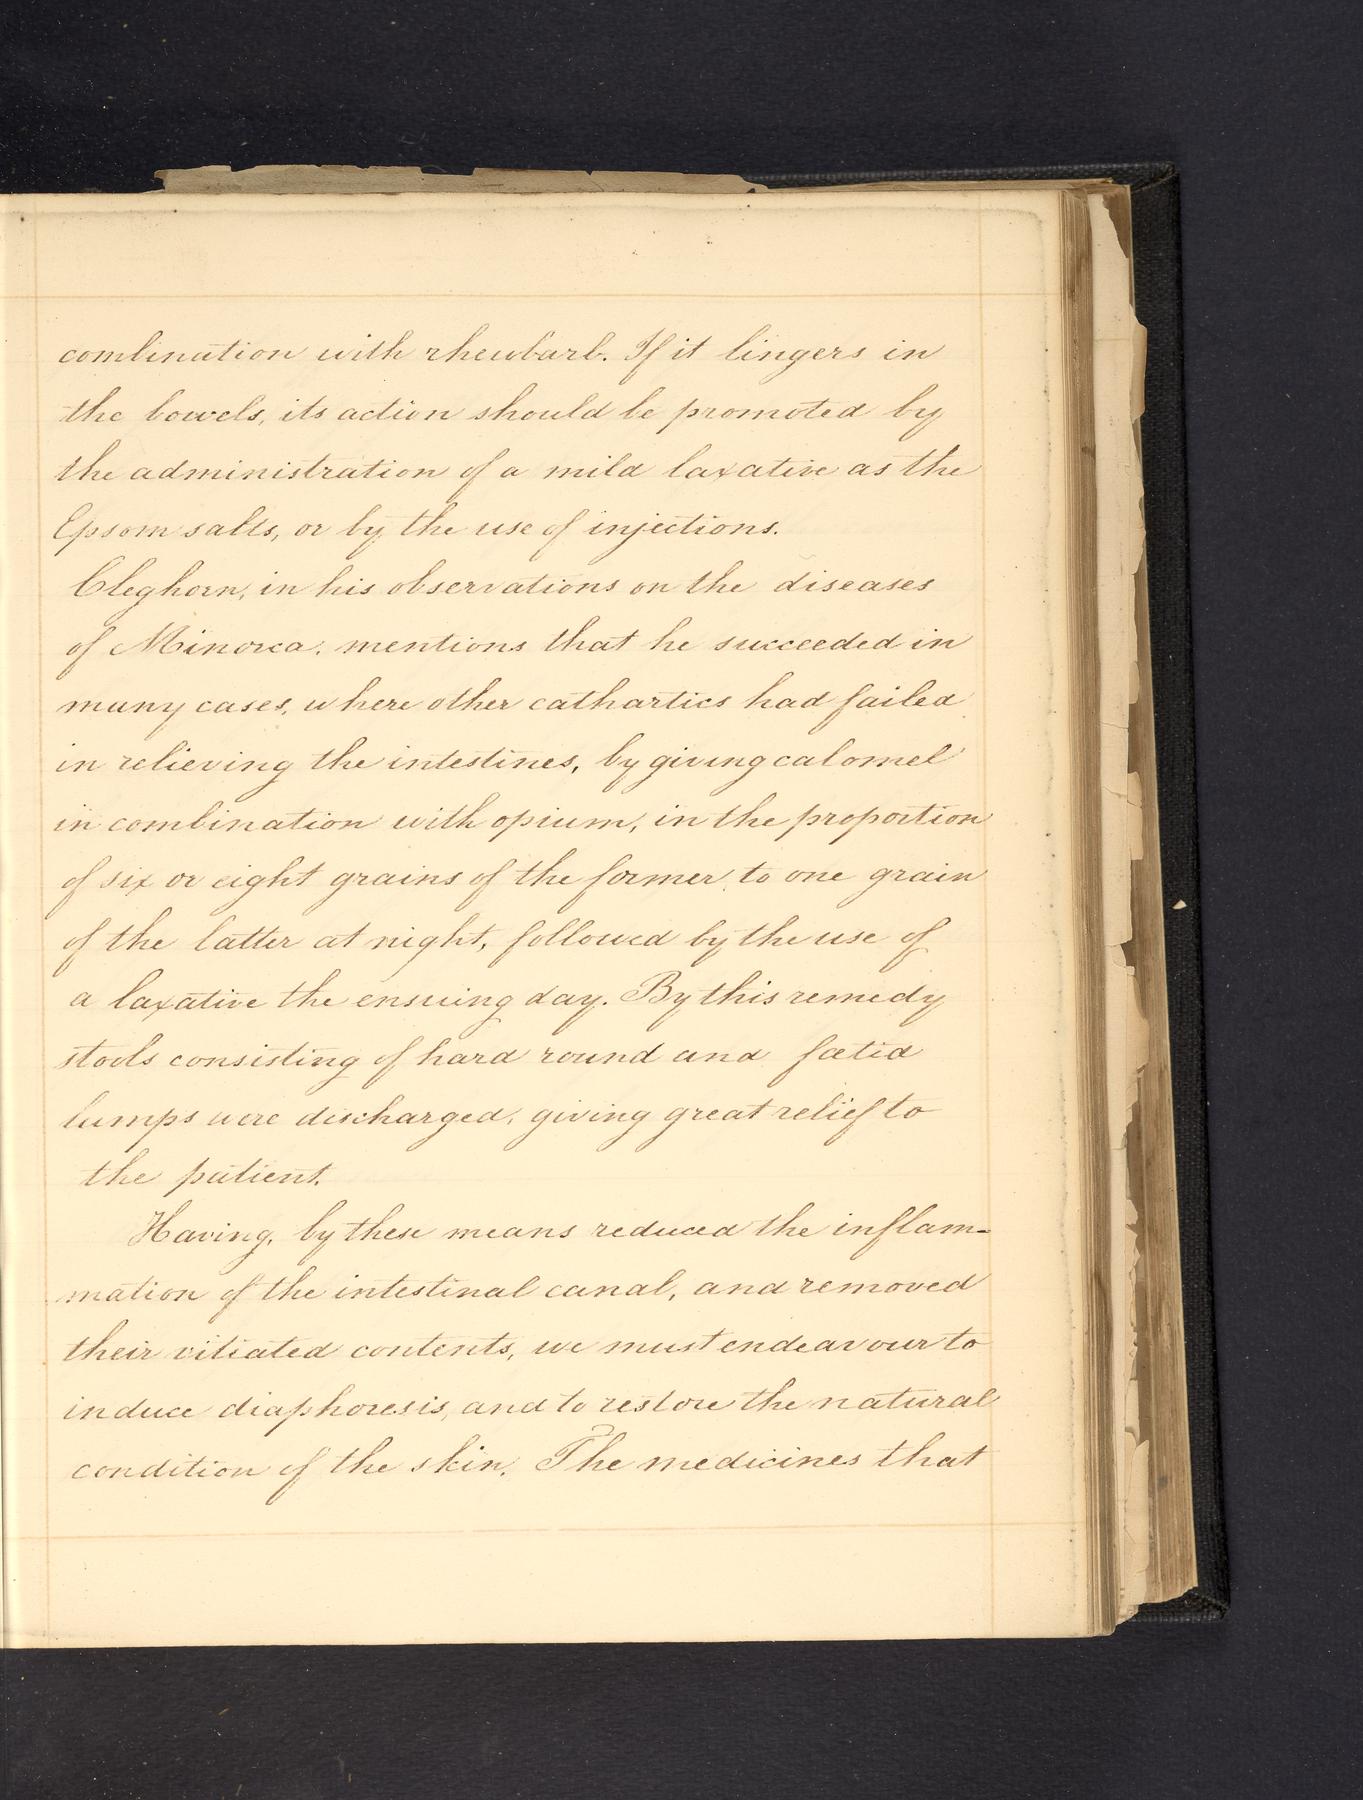 combination with rhewbarb. If it lingers in
the bowels, its action should be promoted by
the administration of a mild laxative as the
Epsom salts, or by the use of injections.
Cleghorn, in his observations on the diseases
of Minorca, mentions that he succeeded in
many cases, where other cathartics had failed
in relieving the intestines, by giving calomel
in combination with opium, in the proportion
of six or eight grains of the former, to one grain
of the latter at night, followed by the use of
a laxative the ensuing day. By this remedy
stools consisting of hard round and fœtid
lumps were discharged, giving great relief to
the patient.
Having, by these means reduced the inflam-
mation of the intestinal canal, and removed
their vitiated contents, we must endeavour to
induce diaphoresis, and to restore the natural
condition of the skin. The medicines that